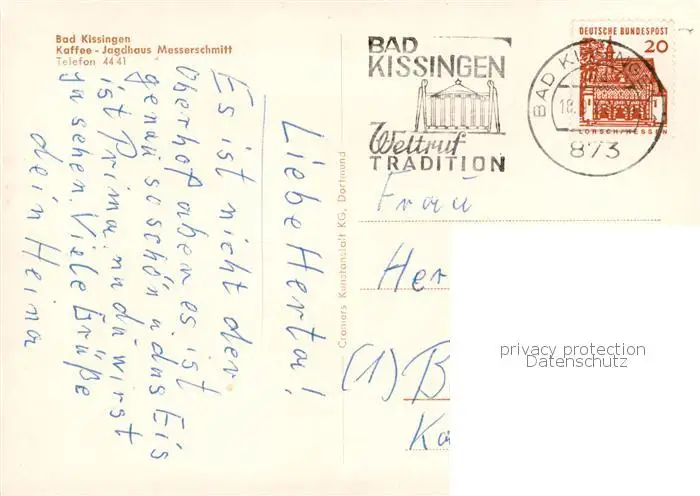 Bad Kissingen
Kaffee - Jagdhaus Messerschmitt
Telefon 44 41
Liebe Herta!
Es ist nicht der
Oberhof aber es ist
genau so schön u. das Eis
ist Prima. und du wirst
ja sehen. Viele Grüße
dein Heina
Cramers Kunstanstalt KG, Dortmund
BAD
KISSINGEN
Weltruf
TRADITION
DEUTSCHE BUNDESPOST
20
LORSCH/HESSEN
BAD KISSINGEN
18.
873
Frau
Her
(1) B
Ka
privacy protection
Datenschutz